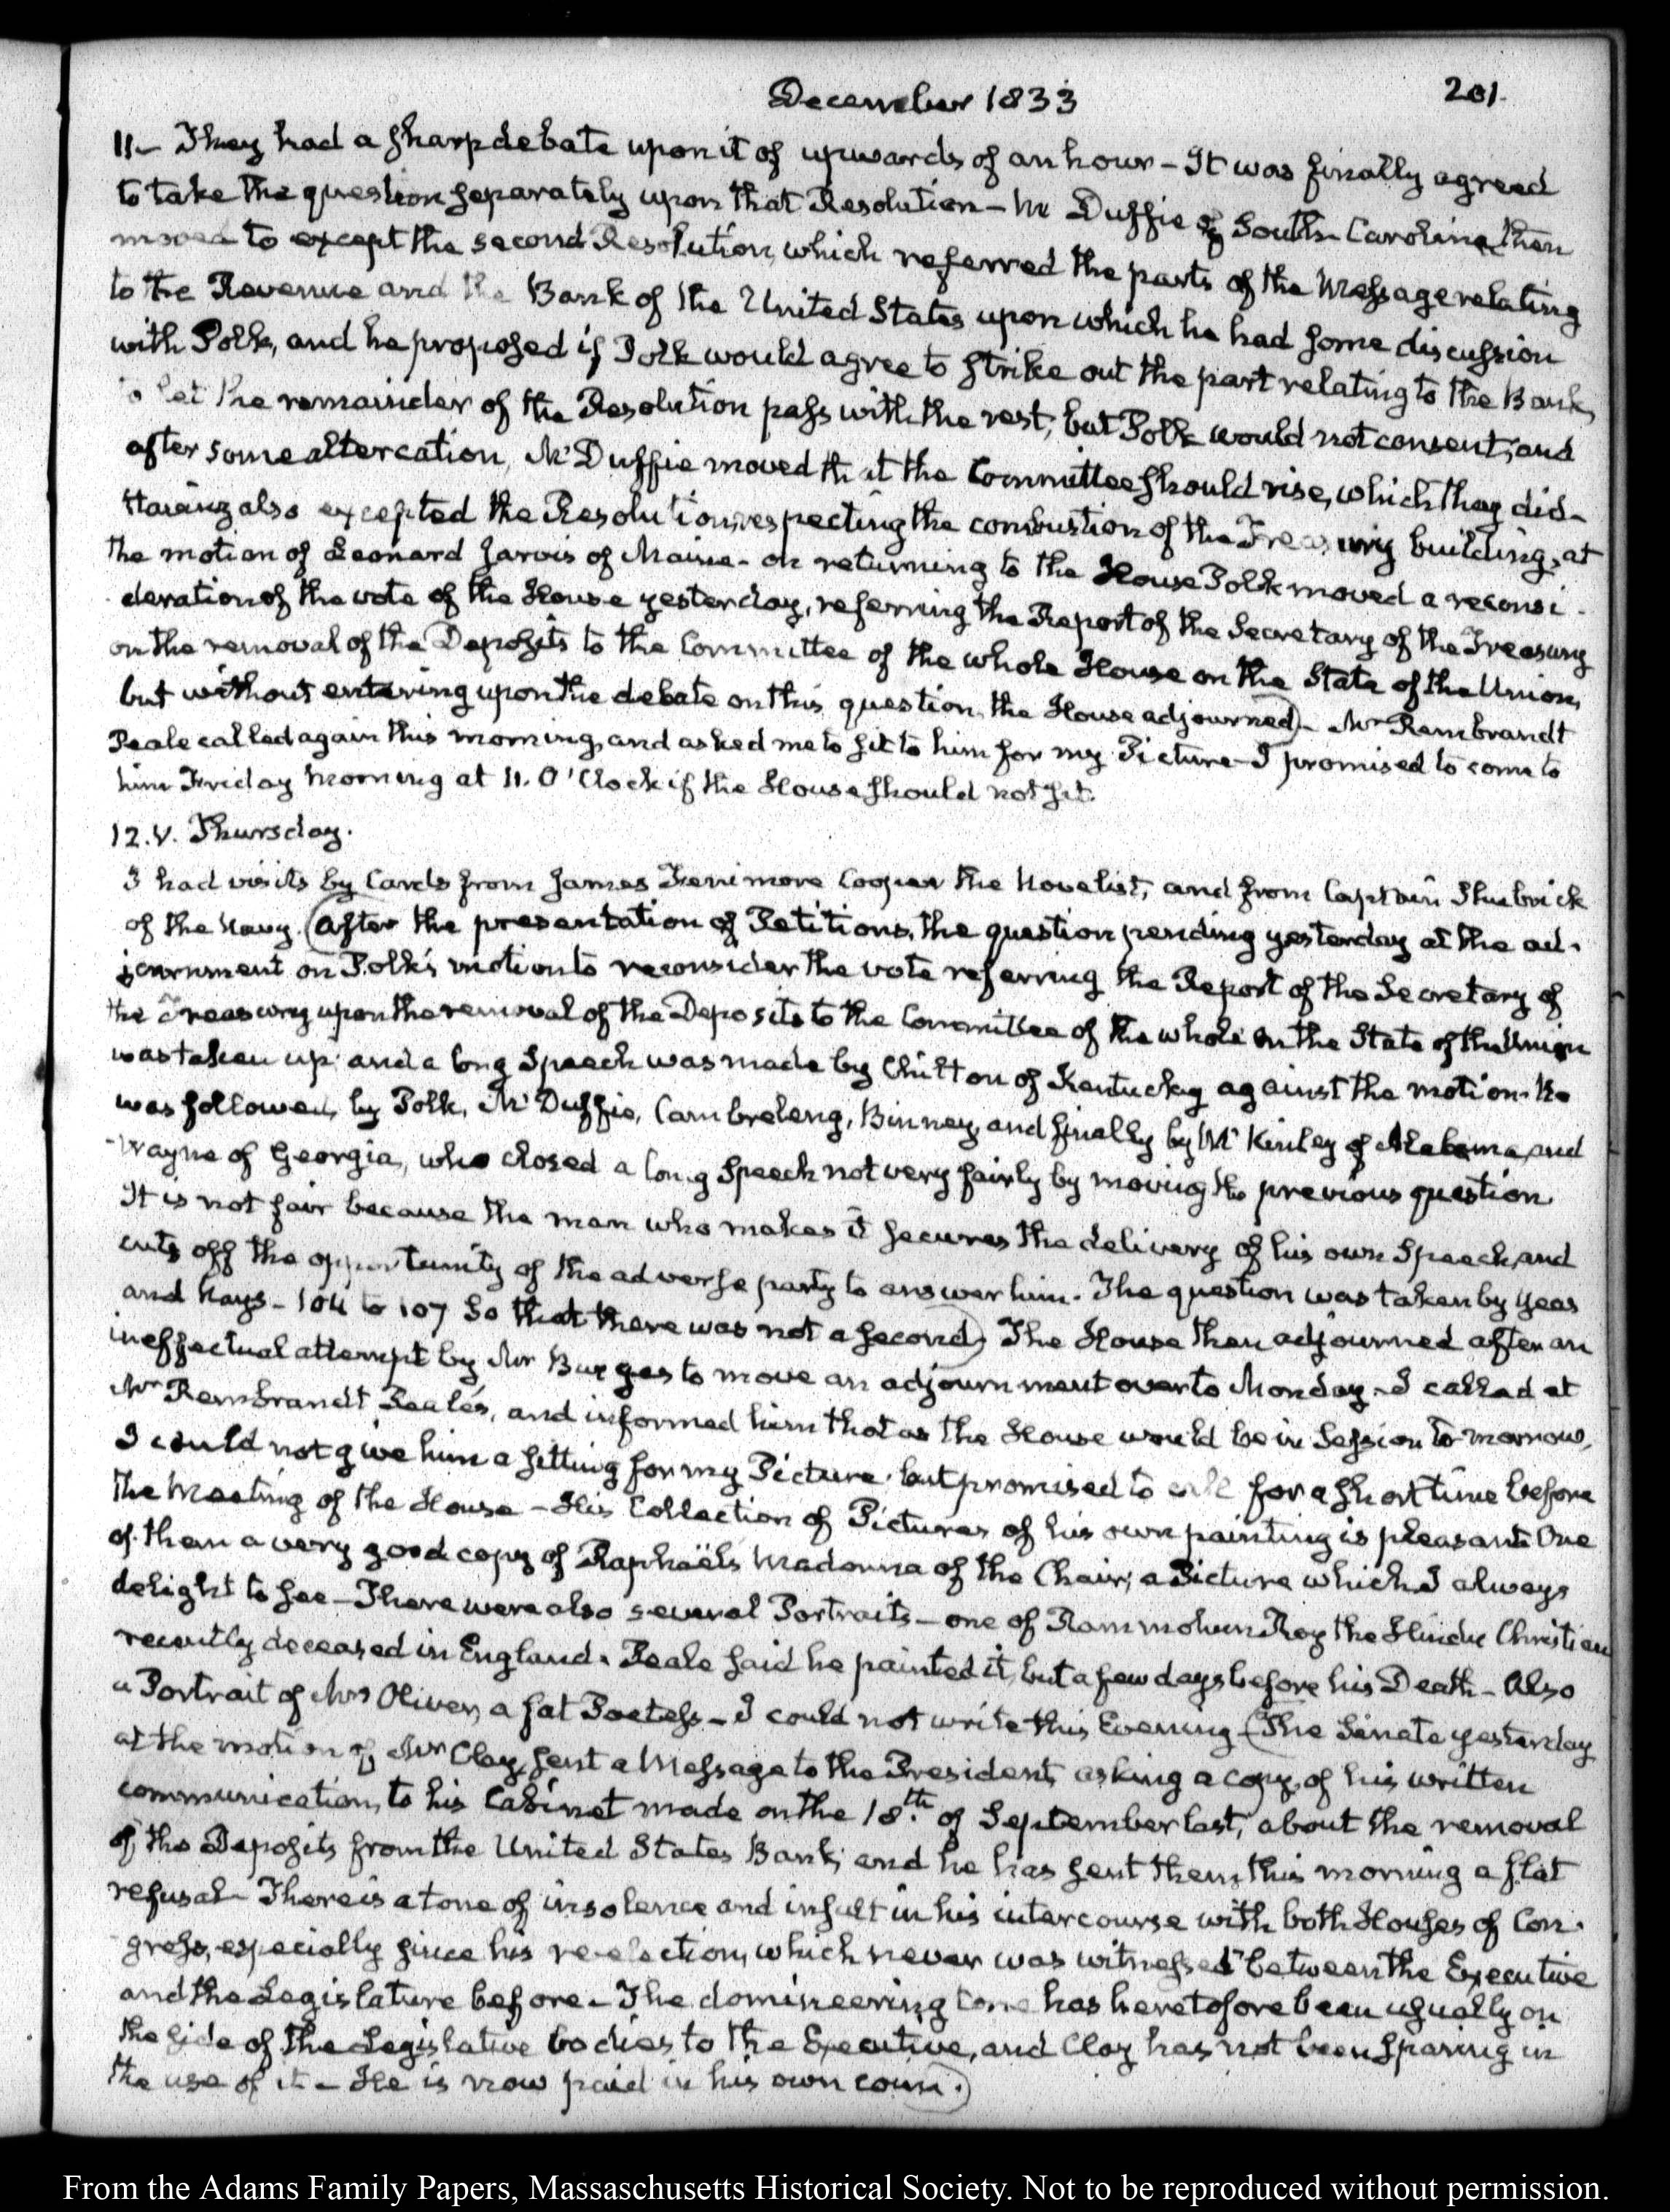 December 1833
201.
11.- They had a sharp debate upon it of upwards of an hour - It was finally agreed
to take the question separately upon that Resolution - Mc Duffie of South-Carolina then
moved to except the second Resolution, which referred the parts of the Message relating
to the Revenue and the Bank of the United States upon which he had some discussion
with Polk, and he proposed if Polk would agree to strike out the part relating to the Bank,
to let the remainder of the Resolution pass with the rest; but Polk would not consent; and
after some altercation, Mc Duffie moved that the Committee should rise, which they did -
Having also excepted the Resolution, respecting the combustion of the Treasury building, at
the motion of Leonard Jarvis of Maine - on returning to the House Polk moved a reconsi-
deration of the vote of the House yesterday, referring the Report of the Secretary of the Treasury
on the removal of the Deposits to the Committee of the whole House on the State of the Union,
but without entering upon the debate on this question, the House adjourned) - Mr Rembrandt
Peale called again this morning, and asked me to sit to him for my Picture - I promised to come to
him Friday Morning at 11. O'Clock if the House should not sit.
12. V. Thursday.
I had visits by Cards from James Fenimore Cooper the Novelist, and from Captain Shubrick
of the Navy. (After the presentation of Petitions, the question pending yesterday at the ad-
journment on Polk's motion to reconsider the vote referring the Report of the Secretary of
the Treasury upon the removal of the Deposits to the Committee of the whole on the State of the Union
was taken up: and a long Speech was made by Chilton of Kentucky against the motion. He
was followed by Polk, Mc Duffie, Cambreleng, Binney, and finally by Mc Kinley of Alabama, and
Wayne of Georgia, who closed a long Speech not very fairly by moving the previous question.
It is not fair because the man who makes it secures the delivery of his own Speech, and
cuts off the opportunity of the adverse party to answer him. The question was taken by yeas
and Nays - 104 to 107 So that there was not a second) The House then adjourned after an
ineffectual attempt by Mr Burges to move an adjournment over to Monday - I called at
Mr Rembrandt Peale's, and informed him that as the House would be in Session to-morrow,
I could not give him a sitting for my Picture, but promised to call for a short time before
the Meeting of the House - His Collection of Pictures of his own painting is pleasant. One
of them a very good copy of Raphaël's Madonna of the Chair; a Picture which I always
delight to see - There were also several Portraits - one of Rammohun Roy the Hindu Christian
recently deceased in England. Peale said he painted it but a few days before his Death - Also
a Portrait of Mrs Oliver, a fat Poetess - I could not write this Evening - (The Senate yesterday
at the motion of Mr Clay, sent a Message to the President, asking a copy of his written
communication, to his Cabinet made on the 18.th of September last, about the removal
of the Deposits from the United States Bank; and he has sent them this morning a flat
refusal - There is a tone of insolence and insult in his intercourse with both Houses of Con-
gress, especially since his re-election, which never was witnessed between the Executive
and the Legislature before - The domineering tone has heretofore been usually on
the side of the Legislative bodies to the Executive, and Clay has not been sparing in
the use of it - He is now paid in his own coin.)
From the Adams Family Papers, Massachusetts Historical Society. Not to be reproduced without permission.